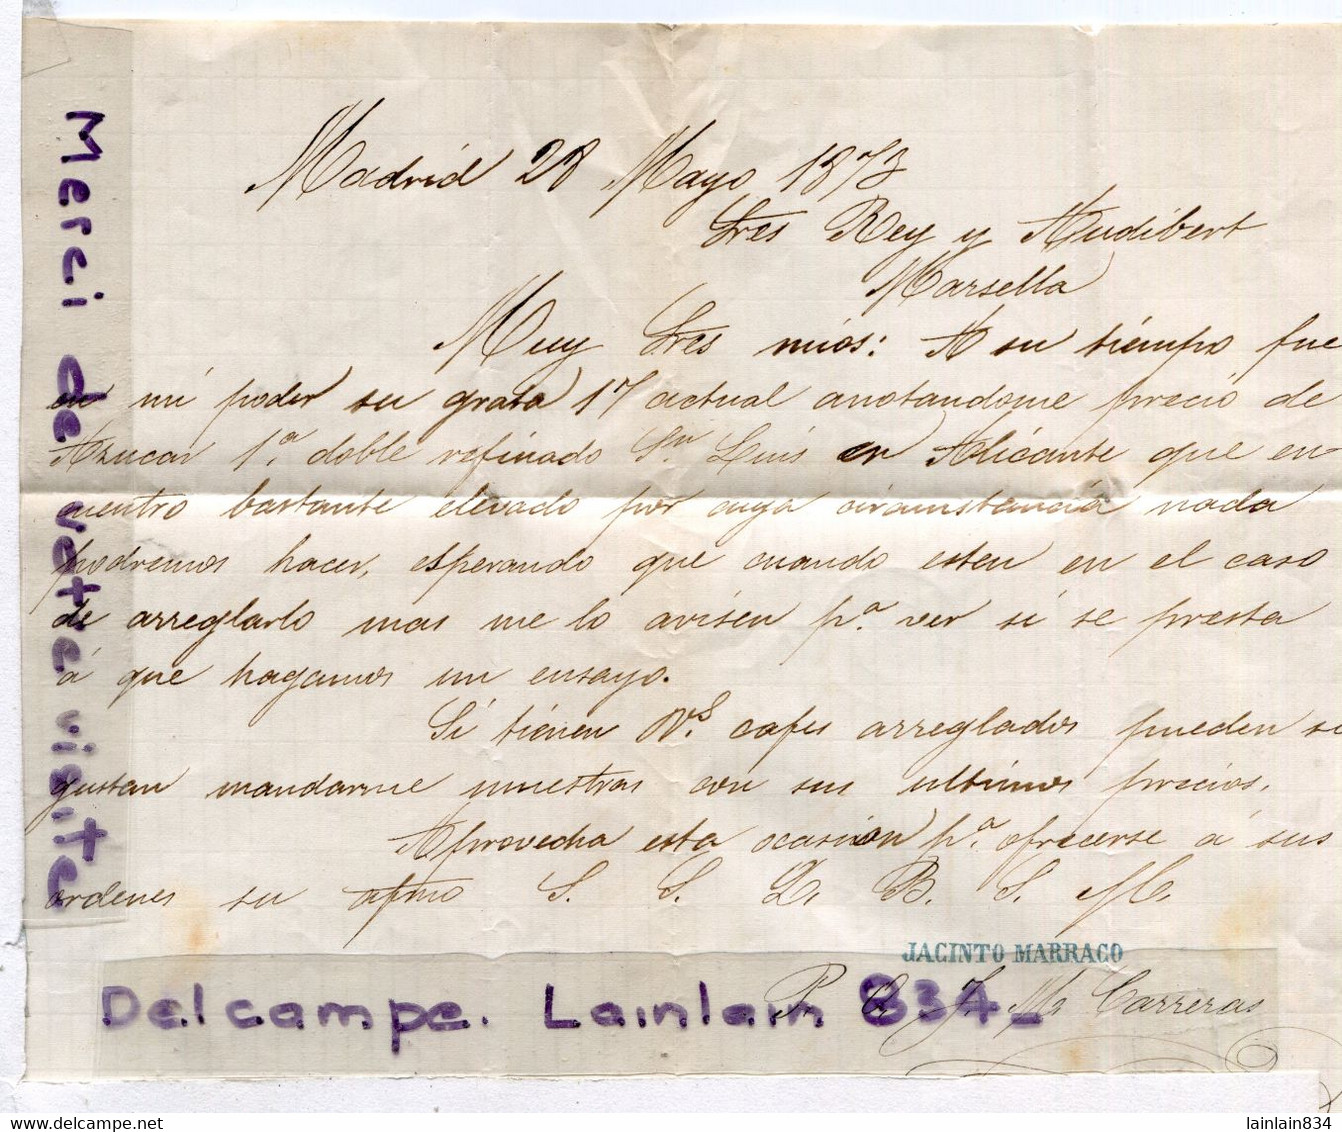 Madrid 28 Mayo 1873
Sres Rey y Audibert
Marsella
Muy Sres mios: A su tiempo fue
en mi poder su grata 17 actual anotandome precio de
Azucar 1ª doble refinado Sn Luis en Alicante que en-
cuentro bastante elevado por cuya circunstancia nada
podremos hacer, esperando que cuando esten en el caso
de arreglarlo mas me lo avisen pª ver si se presta
á que hagamos un ensayo.
Si tienen Vs cafes arreglados pueden si
gustan mandarme muestras con sus ultimos precios.
Aprovecha esta ocasion pª ofrecerse á sus
ordenes su afmo S. S. Q. B. S. M.
JACINTO MARRACO
P. O. J. Mª Carreras
Merci de votre visite
Delcampe. Lainlain 834
delcampe.net
lainlain834